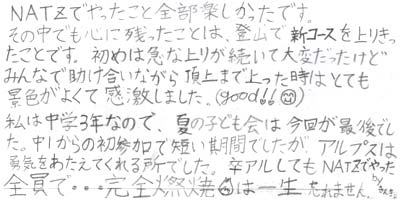 NATZでやったこと全部楽しかったです。
その中でも心に残ったことは、登山で新コースを上りきっ
たことです。初めは急な上りが続いて大変だったけど
みんなで助け合いながら頂上まで上った時はとても
景色がよくて感激しました。(good!!)
私は中学3年なので、夏の子ども会は今回が最後でし
た。中1からの初参加で短い期間でしたが、アルプスは
勇気をあたえてくれる所でした。卒アルしてもNATZでやった
全員で…完全燃焼は一生忘れません。
by